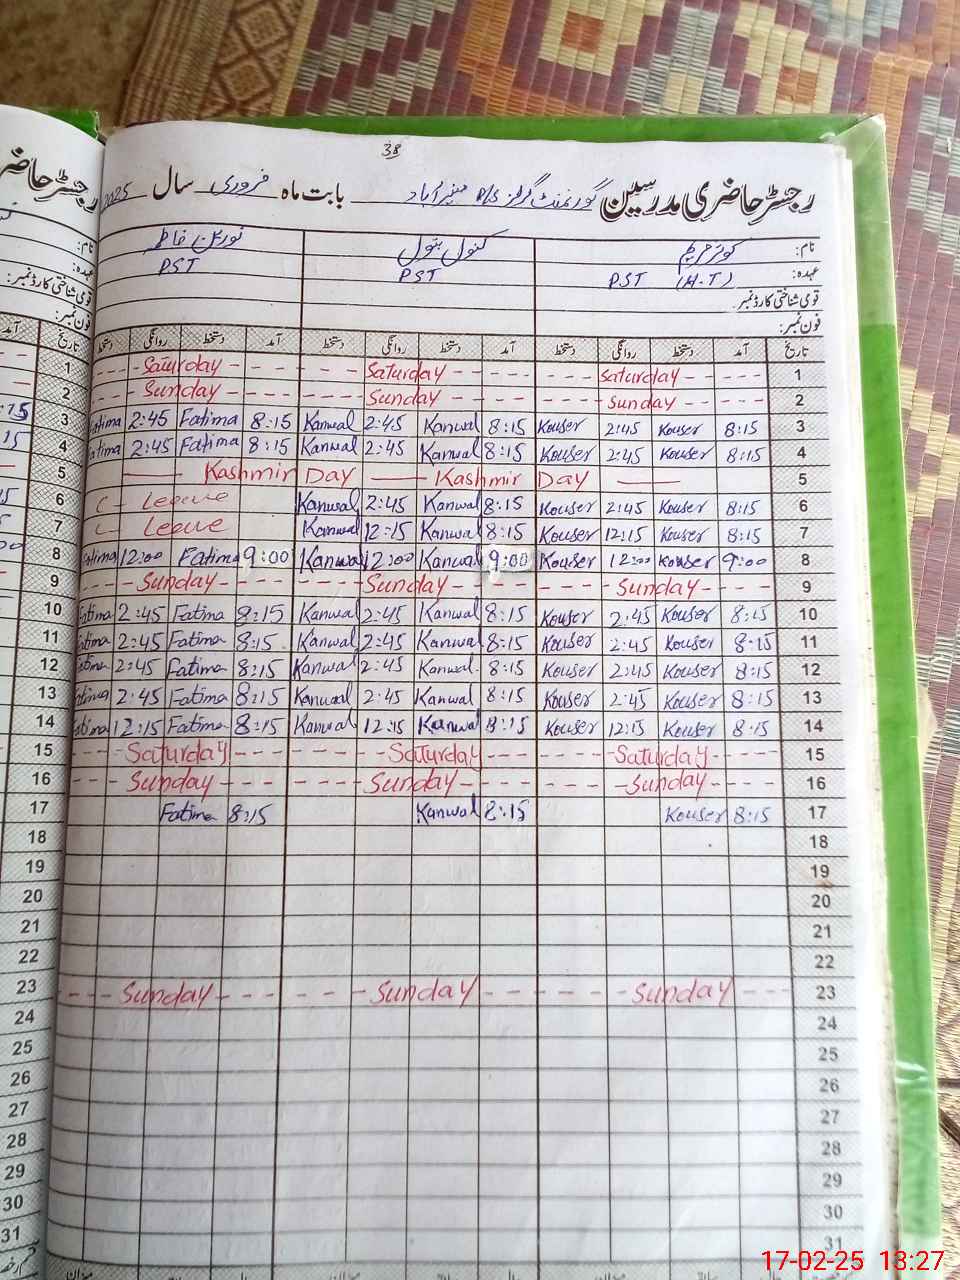 38
رجسٹر حاضری مدرسین گورنمنٹ گرلز P/S منیر آباد بابت ماہ فروری سال 2025
نام: کوثر مریم کنول بتول نورین فاطمہ
عہدہ: PST (H.T) PST PST
قومی شناختی کارڈ نمبر:
فون نمبر:
تاریخ آمد دستخط روانگی دستخط آمد دستخط روانگی دستخط آمد دستخط روانگی دستخط
Saturday Saturday Saturday 1
Sunday Sunday Sunday 2
Fatima 2:45 Fatima 8:15 Kanwal 2:45 Kanwal 8:15 Kouser 2:45 Kouser 8:15 3
Fatima 2:45 Fatima 8:15 Kanwal 2:45 Kanwal 8:15 Kouser 2:45 Kouser 8:15 4
Kashmir Day Kashmir Day 5
C - Leave Kanwal 2:45 Kanwal 8:15 Kouser 2:45 Kouser 8:15 6
C - Leave Kanwal 12:15 Kanwal 8:15 Kouser 12:15 Kouser 8:15 7
Fatima 12:00 Fatima 9:00 Kanwal 12:00 Kanwal 9:00 Kouser 12:00 Kouser 9:00 8
Sunday Sunday Sunday 9
Fatima 2:45 Fatima 8:15 Kanwal 2:45 Kanwal 8:15 Kouser 2:45 Kouser 8:15 10
Fatima 2:45 Fatima 8:15 Kanwal 2:45 Kanwal 8:15 Kouser 2:45 Kouser 8:15 11
Fatima 2:45 Fatima 8:15 Kanwal 2:45 Kanwal 8:15 Kouser 2:45 Kouser 8:15 12
Fatima 2:45 Fatima 8:15 Kanwal 2:45 Kanwal 8:15 Kouser 2:45 Kouser 8:15 13
Fatima 12:15 Fatima 8:15 Kanwal 12:15 Kanwal 8:15 Kouser 12:15 Kouser 8:15 14
Saturday Saturday Saturday 15
Sunday Sunday Sunday 16
Fatima 8:15 Kanwal 8:15 Kouser 8:15 17
18
19
20
21
22
Sunday Sunday Sunday 23
24
25
26
27
28
29
30
31
17-02-25 13:27